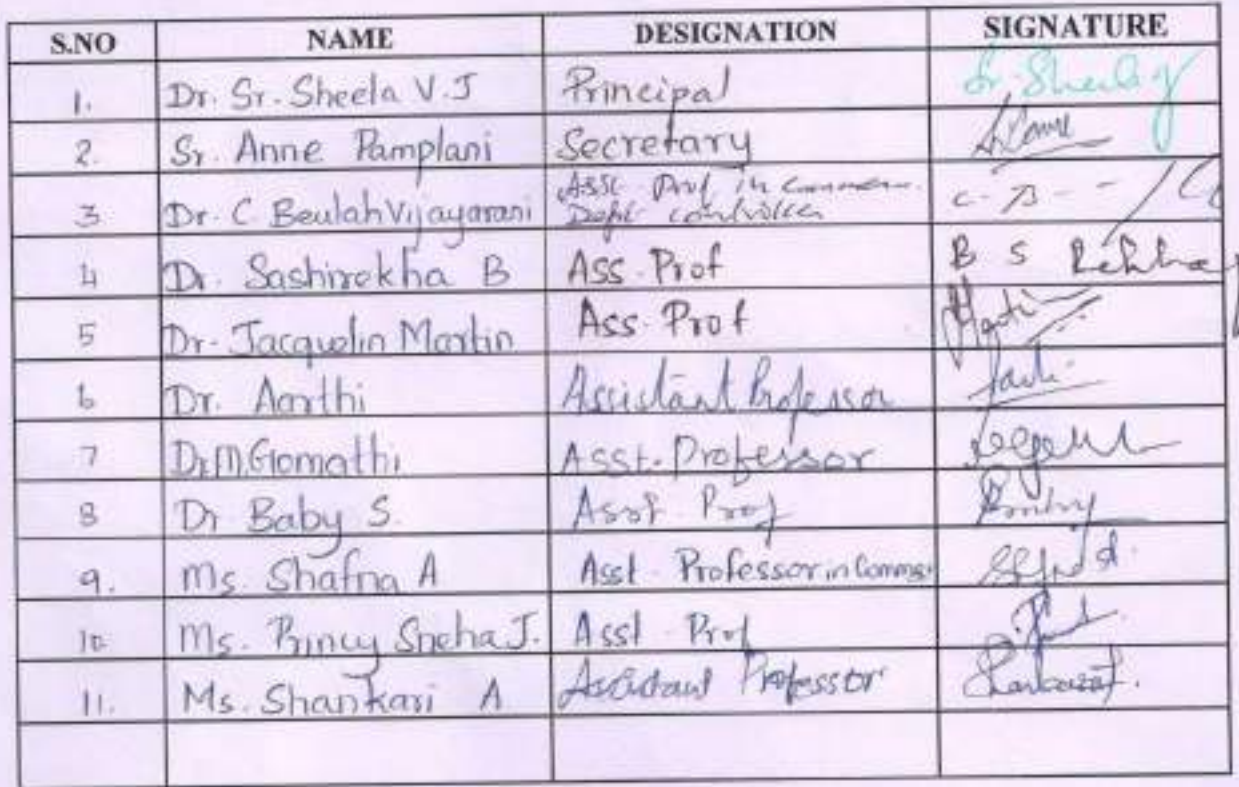 S.NO NAME DESIGNATION SIGNATURE
1. Dr. Sr. Sheela V.J Principal Sr. Sheela
2. Sr. Anne Pamplani Secretary Sr. Anne
3 Dr. C. Beulah Vijayarani Asst. Prof. in Commerce
Dept.
4 Dr. Sashirekha B Ass. Prof B S Rekha
5 Dr. Jacquelin Martin Ass. Prof
6 Dr. Aarthi Assistant Professor
7 Dr. M. Gomathi Asst. Professor
8 Dr Baby S. Asst. Prof
9. Ms. Shafna A Asst. Professor in Commer
10 Ms. Princy Sneha J. Asst Prof
11. Ms. Shankari A Assistant Professor